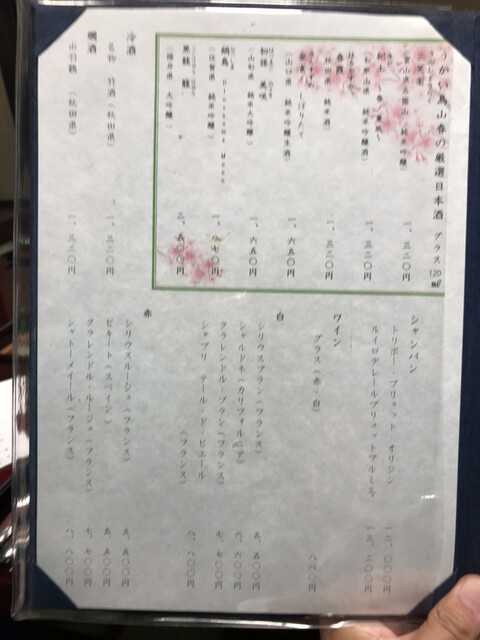 うかい鳥山春の厳選日本酒 グラス120㎖
一、三二〇円
一、三二〇円
(秋田県 純米酒)
一、三二〇円
(山口県 純米吟醸生酒)
一、六五〇円
(石川県 純米大吟醸)
一、六五〇円
鍋島 Blossoms Moon
(佐賀県 純米吟醸)
一、八七〇円
黒龍 龍
(福井県 大吟醸)
二、五〇〇円
冷酒
名物 竹酒(秋田県) 一、三二〇円
燗酒
出羽鶴 (秋田県) 一、三二〇円
シャンパン
トリボー・ブリュット オリジン 一二、〇〇〇円
ルイロデレールブリュットプルミエ 一三、二〇〇円
ワイン
グラス(赤・白) 八八〇円
白
シリウスブラン(フランス) 五、五〇〇円
シャルドネ(カリフォルニア) 六、六〇〇円
クラレンドル・ブラン(フランス) 七、七〇〇円
シャブリ テール・ド・ピエール
(フランス) 八、八〇〇円
赤
シリウスルージュ(フランス) 五、五〇〇円
ビキート(スペイン) 五、五〇〇円
クラレンドル・ルージュ(フランス) 七、七〇〇円
シャトーメイール(フランス) 八、八〇〇円